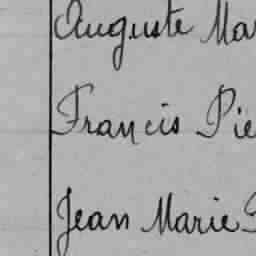 Auguste Mar
Francis Pie
Jean Marie